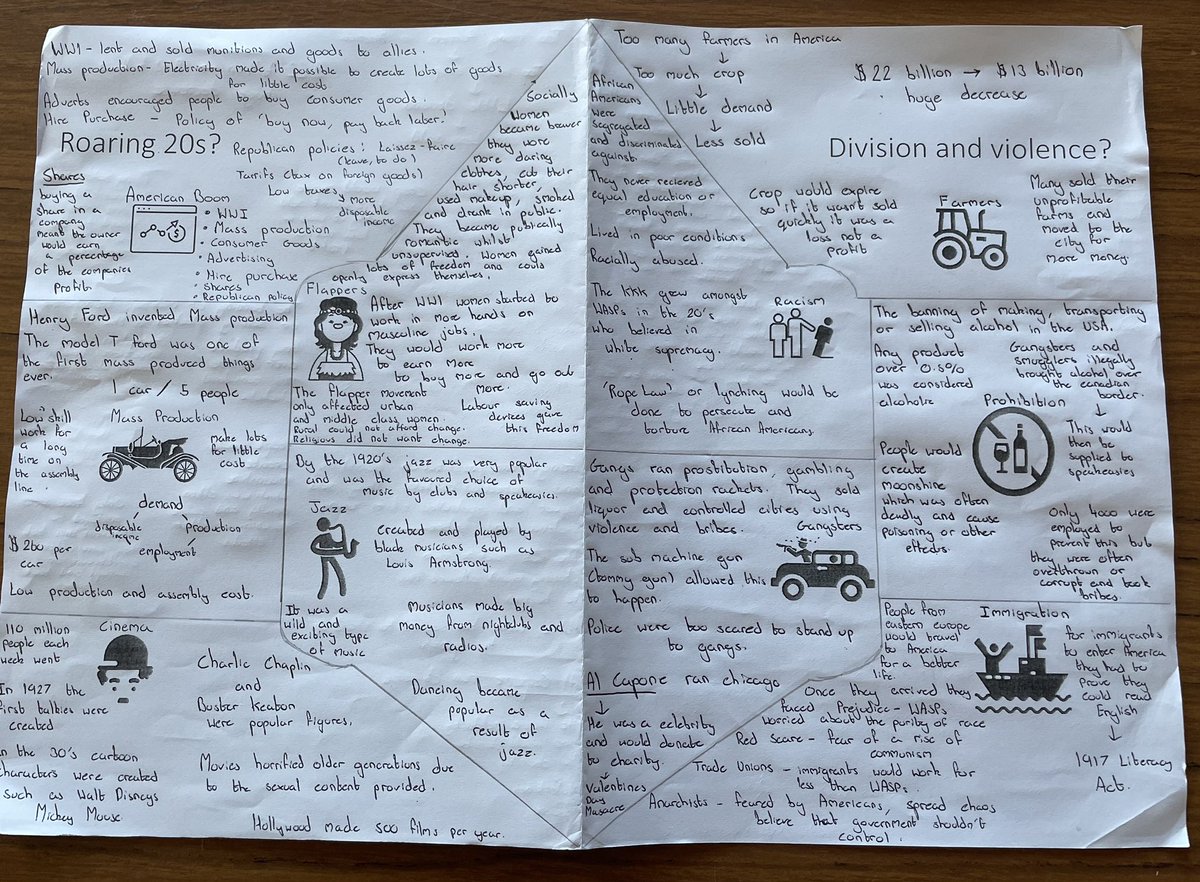 WW1 - lent and sold munitions and goods to allies.
Mass production - Electricity made it possible to create lots of goods
for little cost
Adverts encouraged people to buy consumer goods.
Hire Purchase - Policy of 'buy now, pay back later.'
Roaring 20s?
Republican policies: Laissez-Faire
(leave, to do)
Tarifs (tax on foreign goods)
Low taxes
↘ more
disposable
income
Shares
buying a
share in a
company
meant the owner
would earn
a percentage
of the companies
profit.
American Boom
• WW1
• Mass production
• Consumer Goods
• Advertising
• Hire purchase
• Shares
• Republican policy
Socially
Women
became braver
they wore
more daring
clothes, cut their
hair shorter,
used makeup, smoked
and drank in public.
They became publically
romantic whilst
unsupervised. Women gained
lots of freedom and could
openly express themselves.
Flappers
After WW1 women started to
work in more hands on
masculine jobs.
They would work more
to earn more
to buy more and go out
more.
The flapper movement
only affected urban
and middle class women.
Rural could not afford change.
Religious did not want change.
Labour saving
devices gave
this freedom
Henry Ford invented Mass production
The model T ford was one of
the first mass produced things
ever.
1 car / 5 people
Mass Production
Low skill
work for
a long
time on
the assembly
line.
make lots
for little
cost
demand
disposable
income
production
employment
$260 per
car
Low production and assembly cost.
By the 1920's jazz was very popular
and was the favoured choice of
music by clubs and speakeasies.
Jazz
Created and played by
black musicians such as
Louis Armstrong.
It was a
wild and
exciting type
of music
Musicians made big
money from nightclubs and
radios.
Dancing became
popular as a
result of
jazz.
110 million
people each
week went
Cinema
In 1927 the
first talkies were
created
In the 30's cartoon
characters were created
such as Walt Disneys
Mickey Mouse.
Charlie Chaplin
and
Buster Keaton
were popular figures.
Movies horrified older generations due
to the sexual content provided.
Hollywood made 500 films per year.
Too many farmers in America
↓
Too much crop
↓
Little demand
↓
Less sold
$22 billion → $13 billion
huge decrease
Division and violence?
Crop would expire
so if it wasn't sold
quickly it was a
loss not a
profit
Farmers
Many sold their
unprofitable
farms and
moved to the
city for
more money.
African
Americans
were
segregated
and discriminated
against.
They never recieved
equal education or
employment.
Lived in poor conditions
Racially abused.
The KKK grew amongst
WASPs in the 20's
who believed in
white supremacy.
Racism
'Rope Law' or lynching would be
done to persecute and
torture African Americans.
The banning of making, transporting
or selling alcohol in the USA.
Any product
over 0.5%
was considered
alcoholic
Gangsters and
smugglers illegally
brought alcohol over
the canadian
border.
↓
This would
then be
supplied to
speakeasies
Prohibition
People would
create
moonshine
which was often
deadly and cause
poisoning or other
effects.
Only 4000 were
employed to
prevent this but
they were often
overthrown or
corrupt and took
bribes.
Gangs ran prostitution, gambling
and protection rackets. They sold
liquor and controlled cities using
violence and bribes.
Gangsters
The sub machine gun
(tommy gun) allowed this
to happen.
Police were too scared to stand up
to gangs.
Al Capone ran chicago
↓
He was a celebrity
and would donate
to charity.
Valentines
Day
Massacre
People from
eastern europe
would travel
to America
for a better
life.
Immigration
for immigrants
to enter America
they had to
prove they
could read
English
↓
1917 Literacy
Act.
Once they arrived they
faced Prejudice - WASPs
worried about the purity of race
Red scare - fear of a rise of
communism
Trade Unions - immigrants would work for
less than WASPs.
Anarchists - feared by Americans, spread chaos
believe that government shouldn't
control.